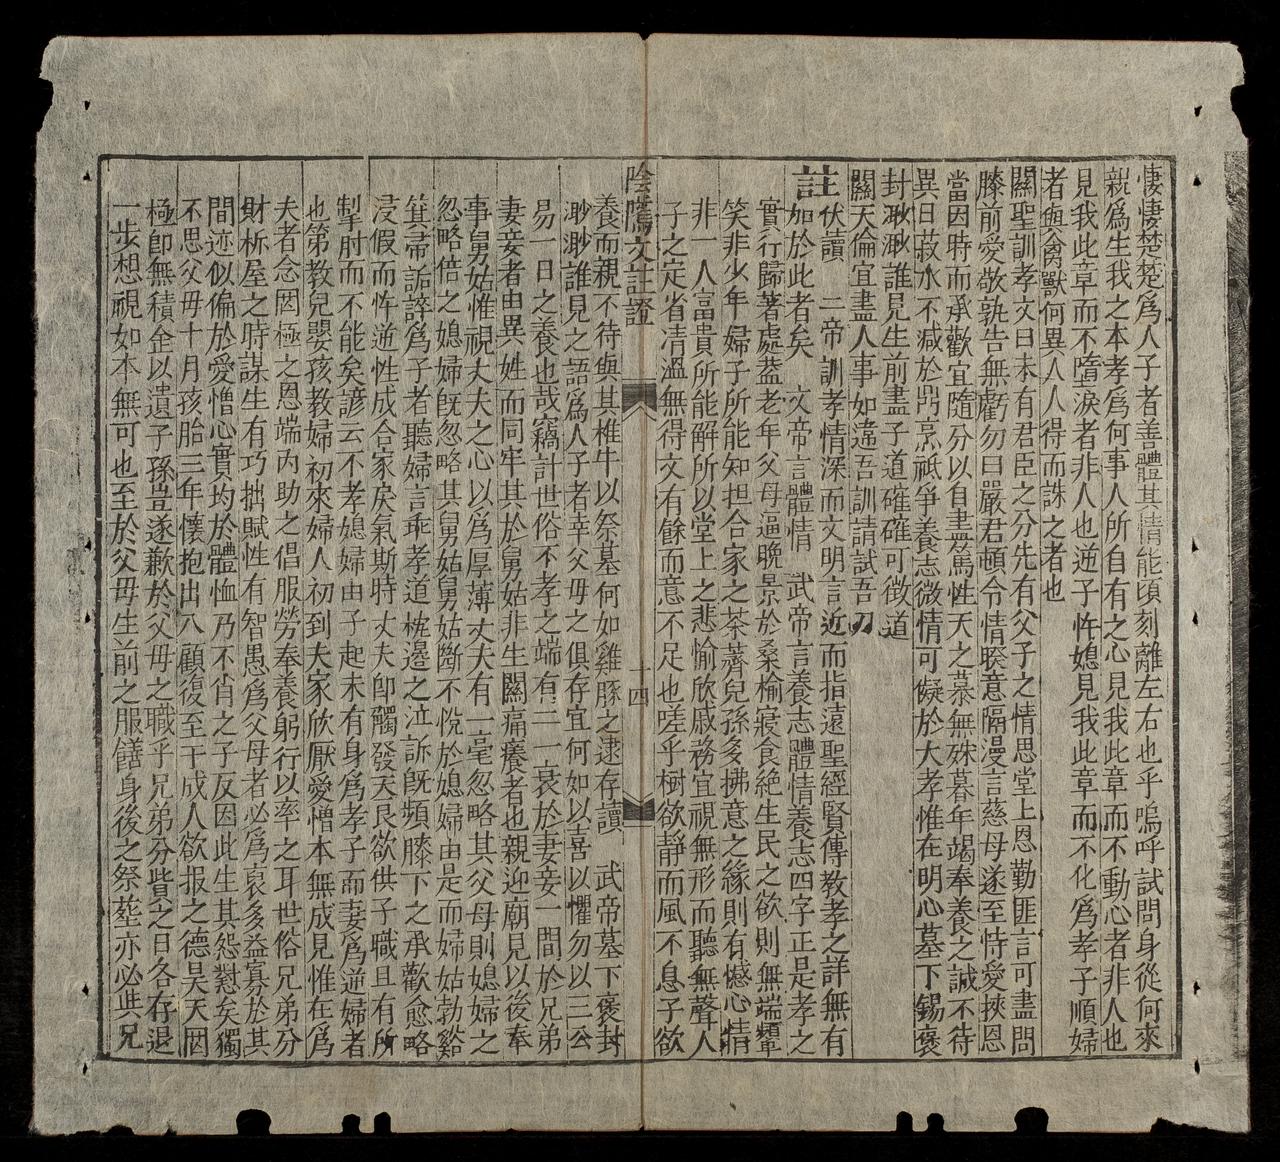 悽悽楚楚爲人子者善體其情能頃刻離左右也乎嗚呼試問身從何來
親爲生我之本孝爲何事人所自有之心見我此章而不動心者非人也
見我此章而不墮淚者非人也逆子忤媳見我此章而不化爲孝子順婦
者與禽獸何異人人得而誅之者也
關聖訓孝文曰未有君臣之分先有父子之情思堂上恩勤匪言可盡問
膝前愛敬孰告無虧勿曰嚴君頓令情暌意隔漫言慈母遂至恃愛挾恩
當因時而承歡宜隨分以自盡篤性天之慕無殊暮年竭奉養之誠不待
異日菽水不減於鼎烹祗爭養志微情可儗於大孝惟在明心墓下錫褒
封渺渺誰見生前盡子道確確可徵道
關天倫宜盡人事如違吾訓請試吾刀
註伏讀　二帝訓孝情深而文明言近而指遠聖經賢傳教孝之詳無有
加於此者矣　文帝言體情　武帝言養志體情養志四字正是孝之
實行歸著處葢老年父母逼晚景於桑榆寢食絶生民之欲則無端顰
笑非少年婦子所能知担合家之茶薺兒孫多拂意之緣則有憾心情
非一人富貴所能解所以堂上之悲愉欣戚務宜視無形而聽無聲人
子之定省清溫無得文有餘而意不足也嗟乎樹欲靜而風不息子欲
陰隲文註證
十四
養而親不待與其椎牛以祭墓何如雞豚之逮存讀　武帝墓下褒封
渺渺誰見之語爲人子者幸父母之俱存宜何如以喜以懼勿以三公
易一日之養也哉竊計世俗不孝之端有二一衰於妻妾一間於兄弟
妻妾者由異姓而同牢其於舅姑非生關痛癢者也親迎廟見以後奉
事舅姑惟視丈夫之心以爲厚薄丈夫有一毫忽略其父母則媳婦之
忽略倍之媳婦旣忽略其舅姑舅姑斷不悅於媳婦由是而婦姑勃谿
箕帚詬誶爲子者聽婦言乖孝道枕邊之泣訴旣頻膝下之承歡愈略
浸假而忤逆性成合家戾氣斯時丈夫卽觸發天良欲供子職且有所
掣肘而不能矣諺云不孝媳婦由子起未有身爲孝子而妻爲逆婦者
也第教兒嬰孩教婦初來婦人初到夫家欣厭愛憎本無成見惟在爲
夫者念罔極之恩端內助之倡服勞奉養躬行以率之耳世俗兄弟分
財柝屋之時謀生有巧拙賦性有智愚爲父母者必爲裒多益寡於其
間迹似偏於愛憎心實均於體恤乃不肖之子反因此生其怨懟矣獨
不思父母十月孩胎三年懷抱出入顧復至于成人欲报之德昊天罔
極卽無積金以遺子孫豈遂歉於父母之職乎兄弟分貲之日各存退
一步想視如本無可也至於父母生前之服饍身後之祭塟亦必此兄